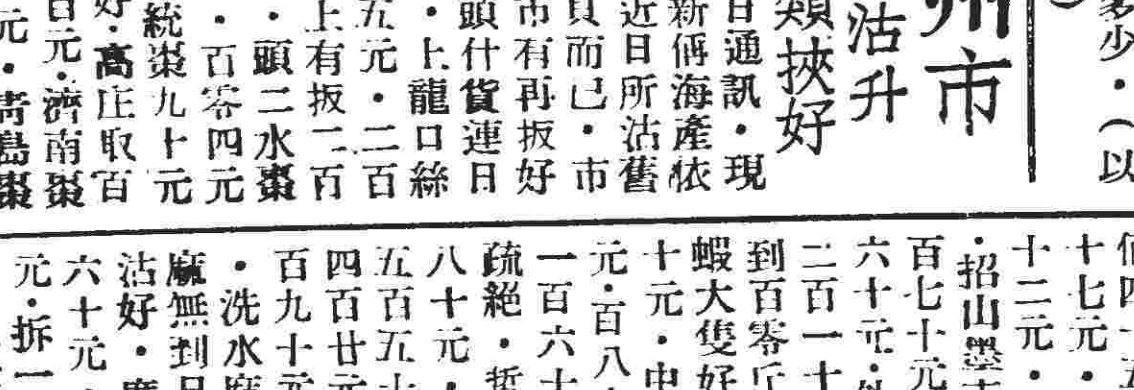 多少・（以
州市
沽升
類挾好
日通訊・現
新俏海產依
近日所沽舊
貨而已・市
市有再扳好
頭什貨連日
・上龍口絲
五元・二百
上有扳二百
・頭二水棗
・百零四元
統棗九十元
好・高庄取百
百元・濟南棗
元・青島棗
十七元・
十二元・
・招山墨
百七十元
六十元・
二百一十
到百零斤
蝦大隻好
十元・中
元・百八
一百六十
疏絕・
八十元・
五百五十
四百廿元
百九十元
・洗水
麻無到
沽好・
六十元・
元・拆一